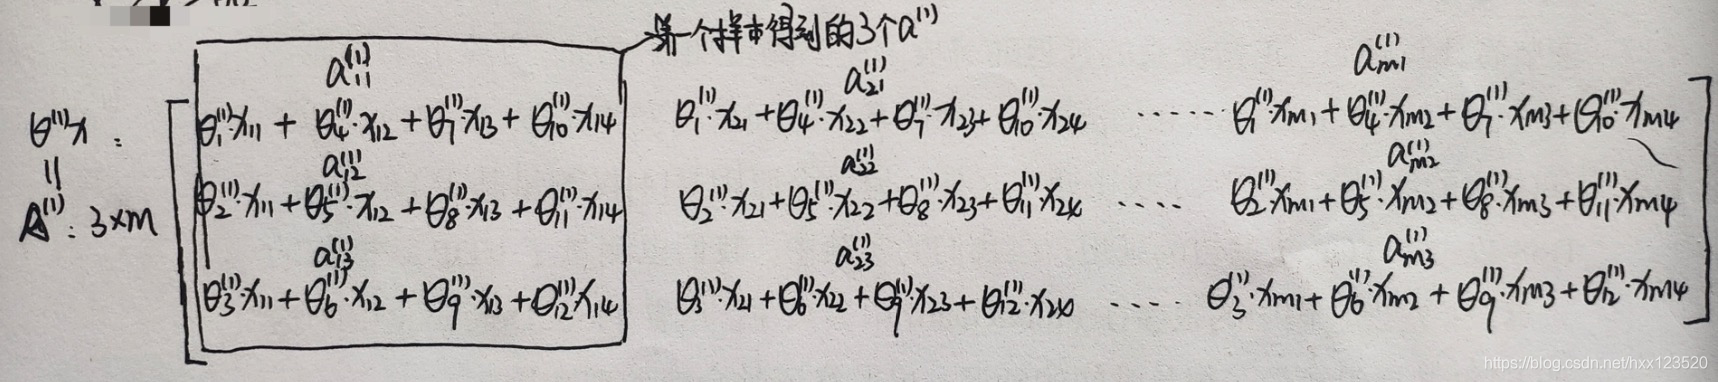 第一个样本得到的3个a⁽¹⁾
a₁₁⁽¹⁾ a₂₁⁽¹⁾ aₘ₁⁽¹⁾
θ⁽¹⁾x : θ₁⁽¹⁾·x₁₁ + θ₄⁽¹⁾·x₁₂ + θ₇⁽¹⁾·x₁₃ + θ₁₀⁽¹⁾·x₁₄ θ₁⁽¹⁾·x₂₁ + θ₄⁽¹⁾·x₂₂ + θ₇⁽¹⁾·x₂₃ + θ₁₀⁽¹⁾·x₂₄ ····· θ₁⁽¹⁾·xₘ₁ + θ₄⁽¹⁾·xₘ₂ + θ₇⁽¹⁾·xₘ₃ + θ₁₀⁽¹⁾·xₘ₄
|| a₁₂⁽¹⁾ a₂₂⁽¹⁾ aₘ₂⁽¹⁾
A⁽¹⁾: 3×m θ₂⁽¹⁾·x₁₁ + θ₅⁽¹⁾·x₁₂ + θ₈⁽¹⁾·x₁₃ + θ₁₁⁽¹⁾·x₁₄ θ₂⁽¹⁾·x₂₁ + θ₅⁽¹⁾·x₂₂ + θ₈⁽¹⁾·x₂₃ + θ₁₁⁽¹⁾x₂₄ ···· θ₂⁽¹⁾·xₘ₁ + θ₅⁽¹⁾·xₘ₂ + θ₈⁽¹⁾·xₘ₃ + θ₁₁⁽¹⁾·xₘ₄
a₁₃⁽¹⁾ a₂₃⁽¹⁾ aₘ₃⁽¹⁾
θ₃⁽¹⁾·x₁₁ + θ₆⁽¹⁾·x₁₂ + θ₉⁽¹⁾·x₁₃ + θ₁₂⁽¹⁾·x₁₄ θ₃⁽¹⁾·x₂₁ + θ₆⁽¹⁾·x₂₂ + θ₉⁽¹⁾·x₂₃ + θ₁₂⁽¹⁾·x₂₄ ···· θ₃⁽¹⁾·xₘ₁ + θ₆⁽¹⁾·xₘ₂ + θ₉⁽¹⁾·xₘ₃ + θ₁₂⁽¹⁾·xₘ₄
https://blog.csdn.net/hxx123520